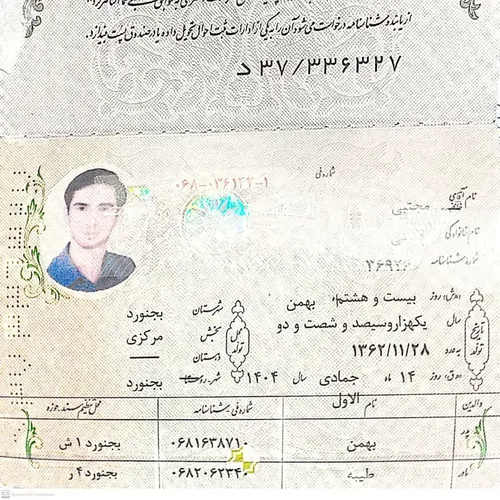 از یابنده شناسنامه درخواست می شود آن را به یکی از ادارات ثبت احوال تحویل داده یا در صندوق پست بیندازد.
د ۳۷/۳۳۶۳۲۷
شماره ملی
۰۶۸-۰۳۶۱۲۲-۱
نام آقای مجتبی
نام خانوادگی
شماره شناسنامه
تاریخ تولد
ه.ش: روز بیست و هشتم ماه بهمن
سال یکهزاروسیصد و شصت و دو
به عدد ۱۳۶۲/۱۱/۲۸
ه.ق: روز ۱۴ ماه جمادی الاول سال ۱۴۰۴
محل تولد
شهرستان بجنورد
بخش مرکزی
دهستان —
شهر بجنورد
والدین نام شماره ملی / شناسنامه محل تنظیم سند / حوزه
پدر بهمن ۰۶۸۱۶۳۸۷۱۰ بجنورد ۱ ش
مادر طیبه ۰۶۸۲۰۶۲۳۴۰ بجنورد ۴ ر